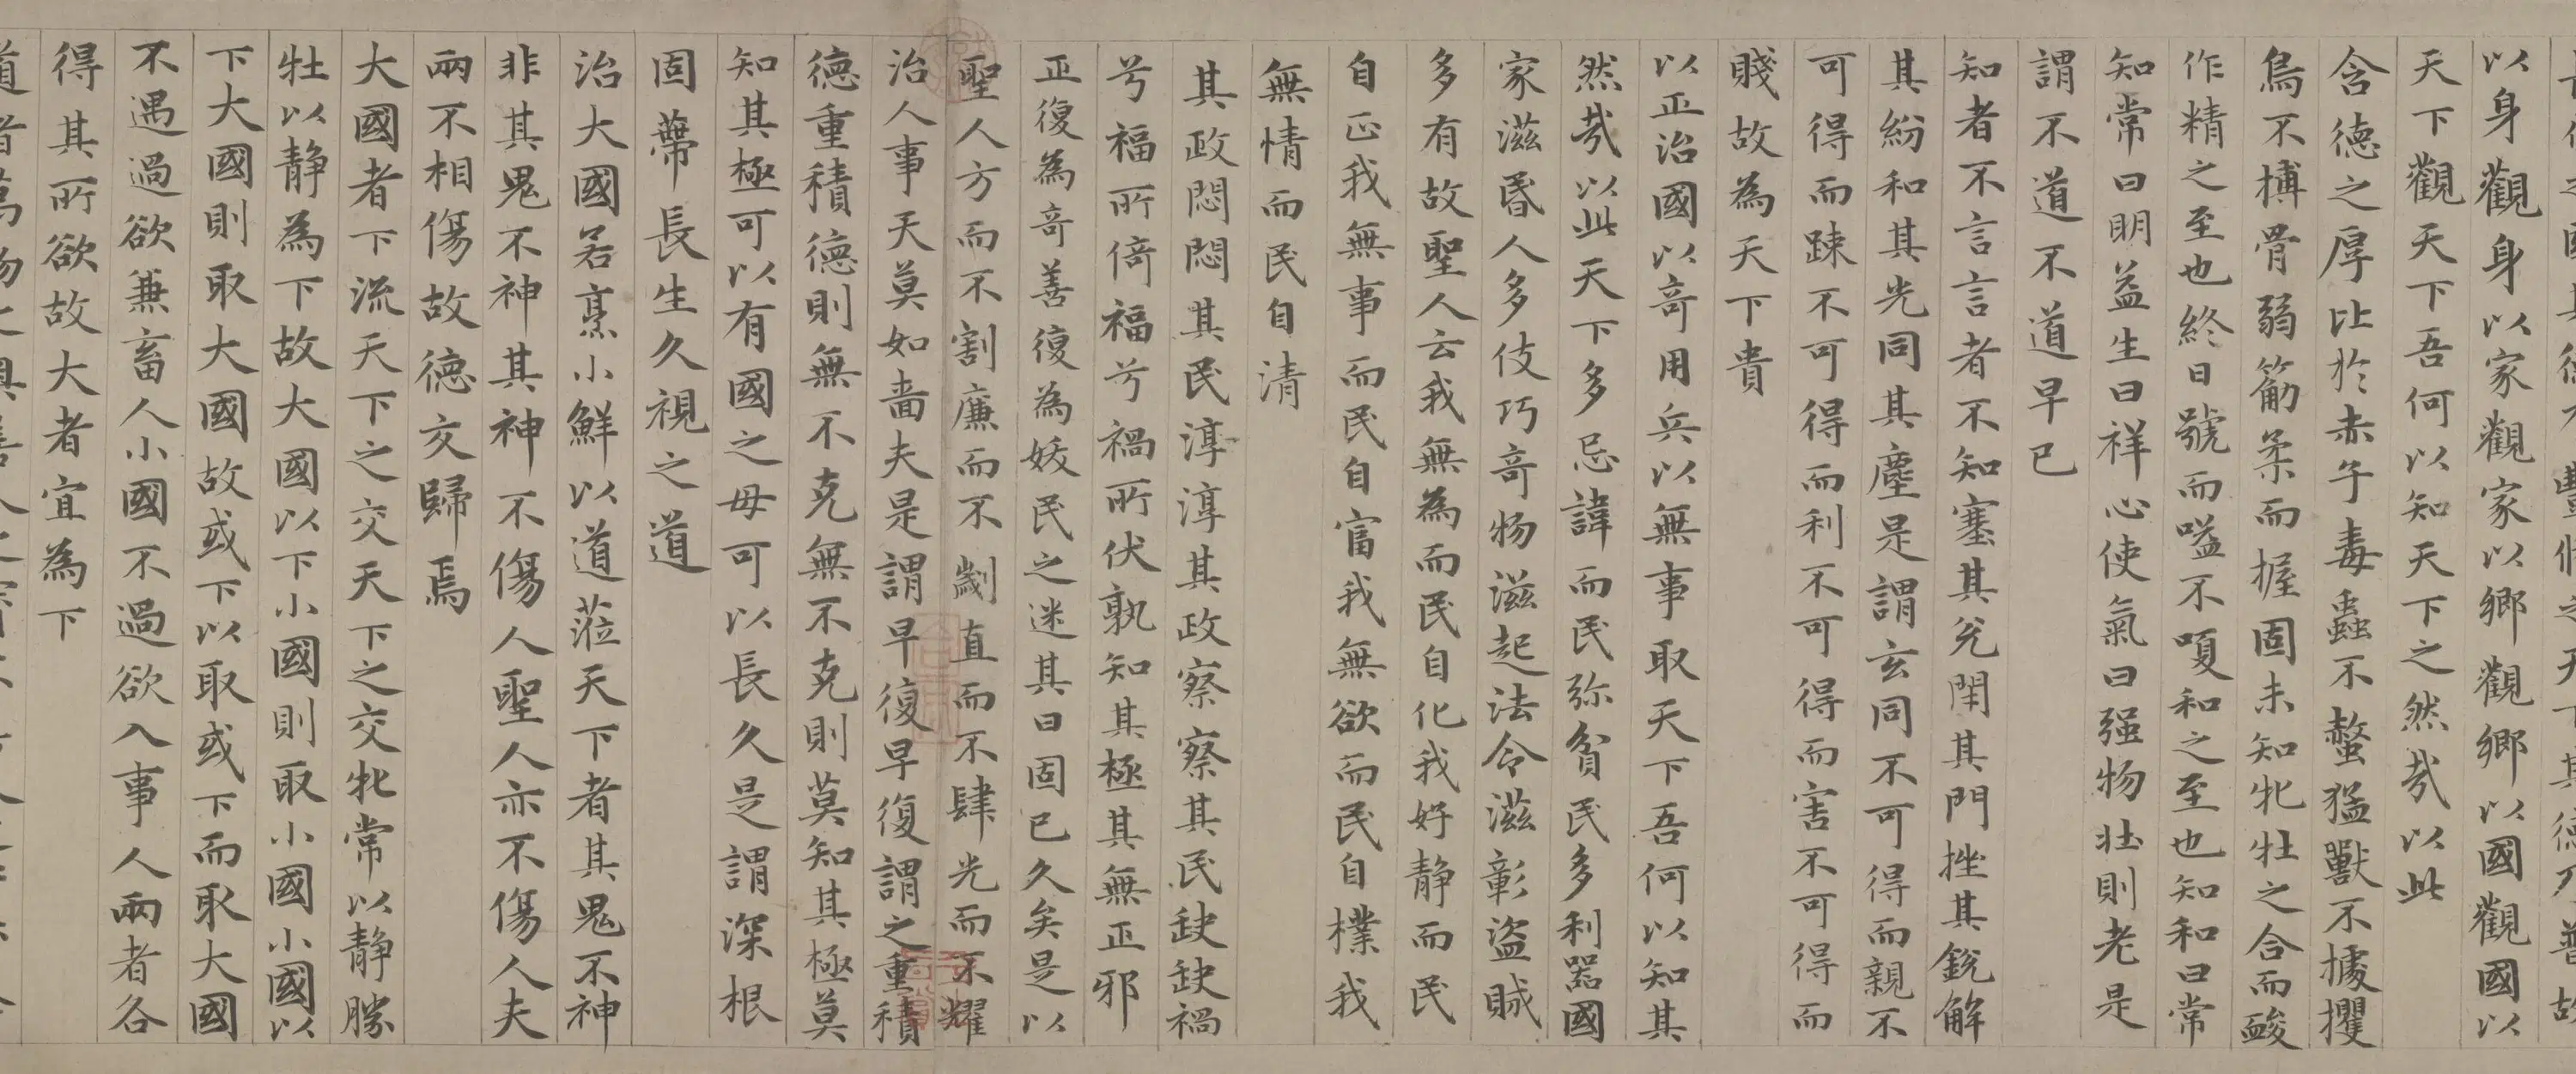 之國其德乃豐脩之天下其德乃普故
以身觀身以家觀家以鄉觀鄉以國觀國以
天下觀天下吾何以知天下之然哉以此
含德之厚比於赤子毒蟲不螫猛獸不據攫
鳥不搏骨弱筋柔而握固未知牝牡之合而䘒
作精之至也終日號而嗌不嗄和之至也知和曰常
知常曰明益生曰祥心使氣曰强物壯則老是
謂不道不道早已
知者不言言者不知塞其兌閉其門挫其銳解
其紛和其光同其塵是謂玄同不可得而親不
可得而踈不可得而利不可得而害不可得而
賤故為天下貴
以正治國以奇用兵以無事取天下吾何以知其
然哉以此天下多忌諱而民弥貧民多利器國
家滋昬人多伎巧奇物滋起法令滋彰盜賊
多有故聖人云我無為而民自化我好静而民
自正我無事而民自富我無欲而民自樸我
無情而民自清
其政悶悶其民淳淳其政察察其民缺缺禍
兮福所倚福兮禍所伏孰知其極其無正邪
正復為奇善復為妖民之迷其日固已久矣是以
聖人方而不割廉而不劌直而不肆光而不耀
治人事天莫如嗇夫是謂早復早復謂之重積
德重積德則無不克無不克則莫知其極莫
知其極可以有國之母可以長久是謂深根
固蔕長生久視之道
治大國若烹小鮮以道蒞天下者其鬼不神
非其鬼不神其神不傷人聖人亦不傷人夫
兩不相傷故德交歸焉
大國者下流天下之交天下之交牝常以静勝
牡以静為下故大國以下小國則取小國小國以
下大國則取大國故或下以取或下而取大國
不過過欲兼畜人小國不過欲入事人兩者各
得其所欲故大者宜為下
道者萬物之奧善人之寶